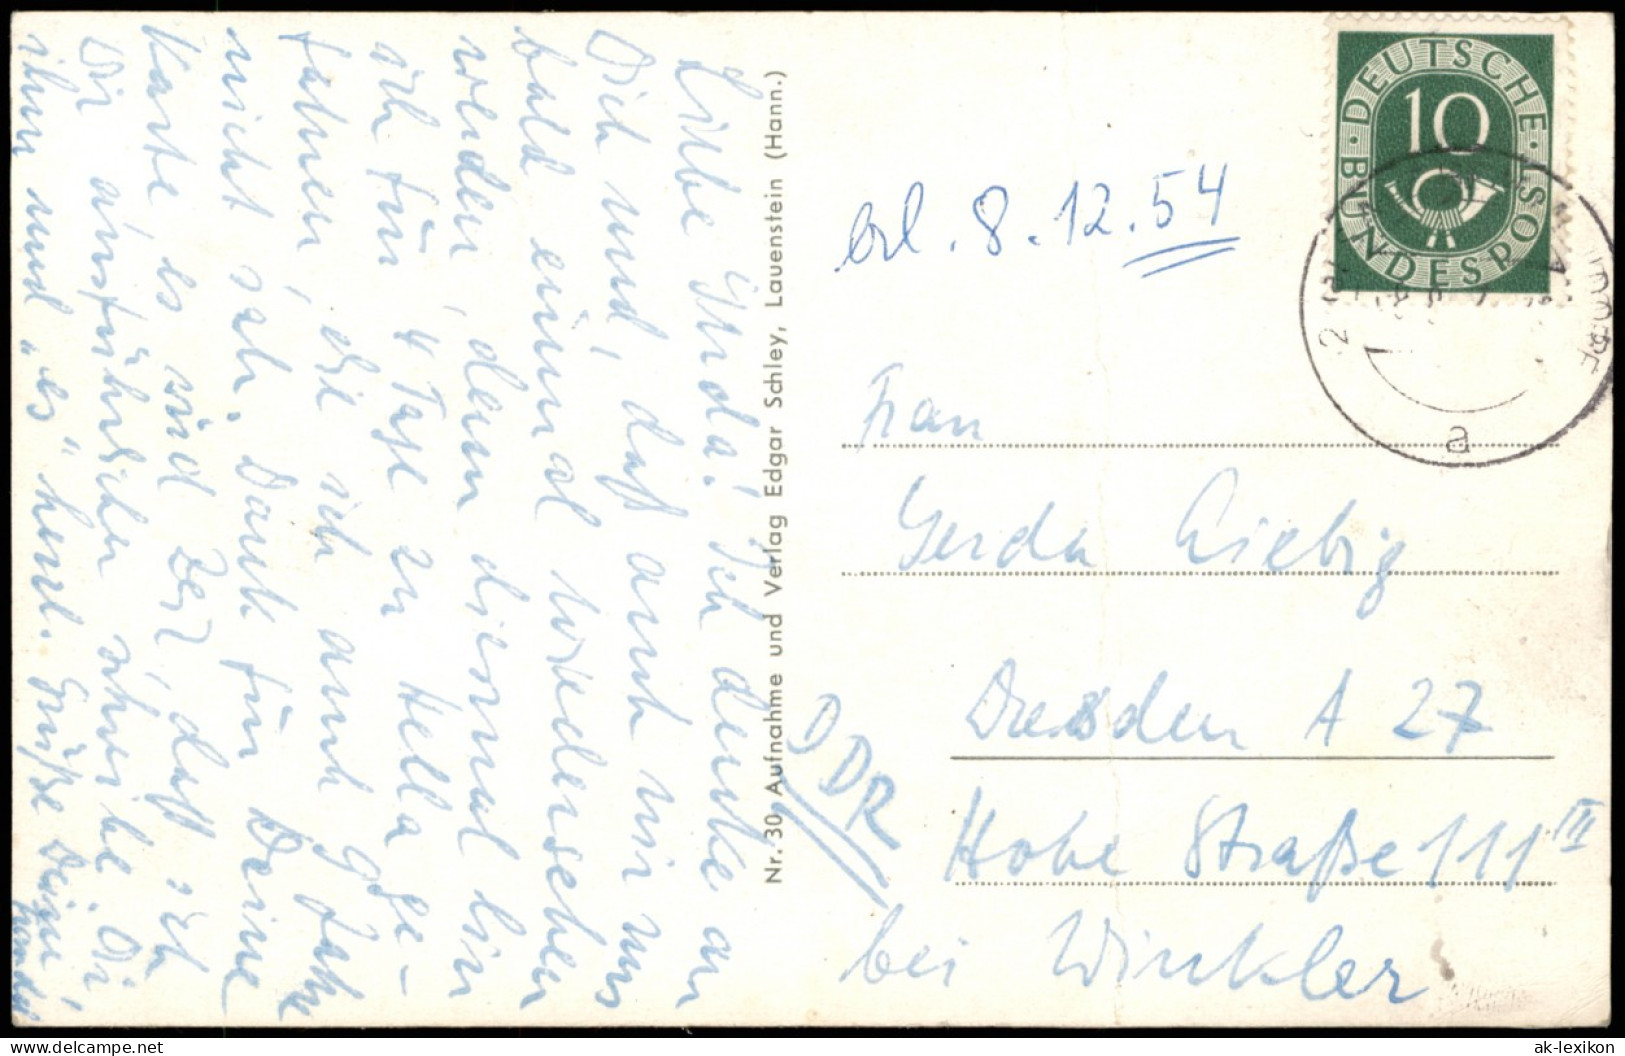 Liebe Gerda! Ich denke an
Dich und, daß auch wir uns
bald einmal wiedersehen
werden, denn diesmal bin
ich für 4 Tage zu Hella ge-
fahren, die ich auch 9 Jahre
nicht sah. Dank für Deine
Karte es wird Zeit, daß ich
Dir ausführlicher schreibe Di
ihm und "es" herzl. Grüße Deine
Nr. 30 Aufnahme und Verlag Edgar Schley, Lauenstein (Hann.)
DEUTSCHE BUNDESPOST
10
a
erl. 8.12.54
Frau
Gerda Liebig
Dresden A 27
Hohe Straße 111 III
bei Winkler
DDR
ak-lexikon